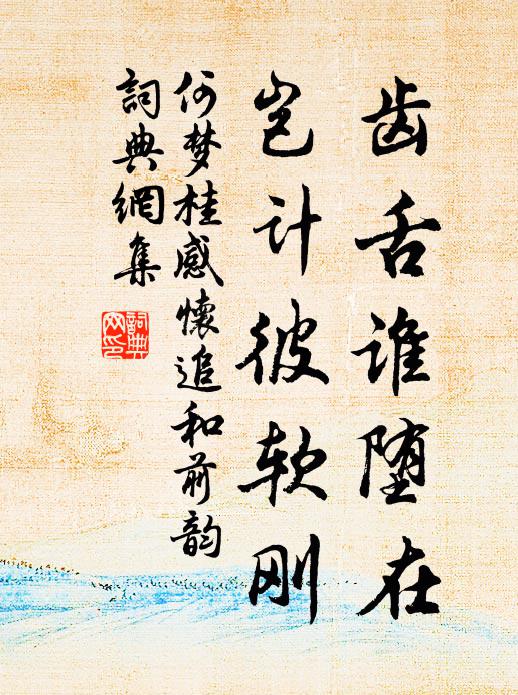 齿舌谁堕在
岂计彼软刚
何梦桂感懷追和前韵
詞典網集
詞典
网印